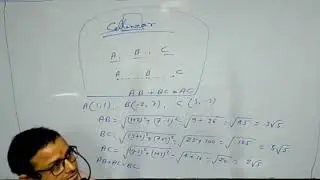 Collinear
A, B, C
A B C
AB + BC = AC
A(1,1) B(-2,7) C(3,-3)
AB = √(1+2)² + (7-1)² = √9+36 = √45 = 3√5
BC = √(3+2)² + (7+3)² = √25+100 = √125 = 5√5
AC = √ = √4+16 = √20 = 2√5
AB + AC = BC